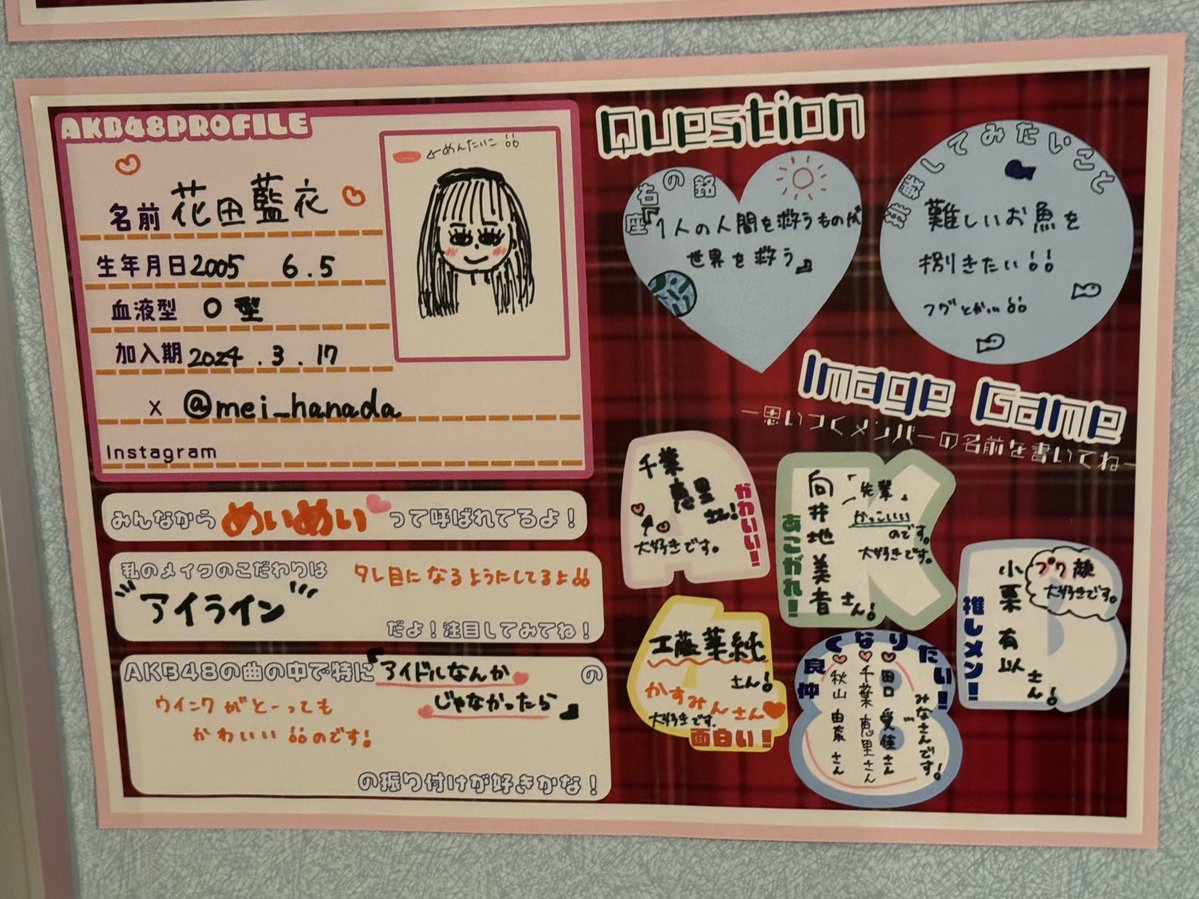 AKB48PROFILE
←めんたいこ!!
名前 花田藍衣
生年月日 2005 6.5
血液型 O型
加入期 2024.3.17
X @mei_hanada
Instagram
みんなから めいめい って呼ばれてるよ!
私のメイクのこだわりは タレ目になるようにしてるよ!!
アイライン
だよ!注目してみてね!
AKB48の曲の中で特に「アイドルなんか
じゃなかったら」の
ウインクがとーっても
かわいい!!のです!
の振り付けが好きかな!
Question
座右の銘
『1人の人間を救うものが
世界を救う』
挑戦してみたいこと
難しいお魚を
捌きたい!!
フグとか…!!
Image Game
ー思いつくメンバーの名前を書いてねー
かわいい!
千葉
恵里
さん!
大好きです。
あこがれ!
向井地美音さん!
「先輩」
かっこいい
のです。
大好きです。
推しメン!
小栗有以さん!
プク顔
大好きです。
工藤華純
さん!
かすみんさん
大好きです。
面白い!
仲良くなりたい!
みなさんです!
田口愛佳さん
千葉恵里さん
秋山由奈さん